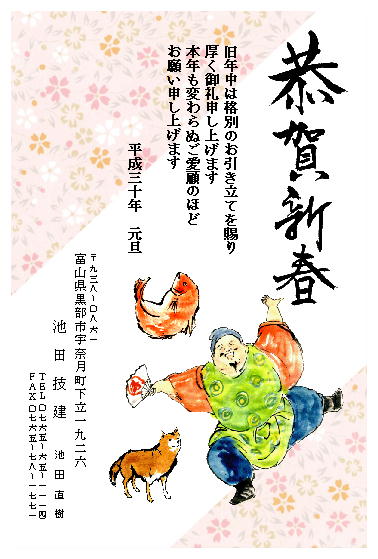 恭賀新春
旧年中は格別のお引き立てを賜り
厚く御礼申し上げます
本年も変わらぬご愛顧のほど
お願い申し上げます
平成三十年　元旦
〒九三八-〇八六一
富山県黒部市宇奈月町下立一九二六
池田技建　池田直樹
ＴＥＬ〇七六五-六五-一一一四
ＦＡＸ〇七六五-七八-一七七一